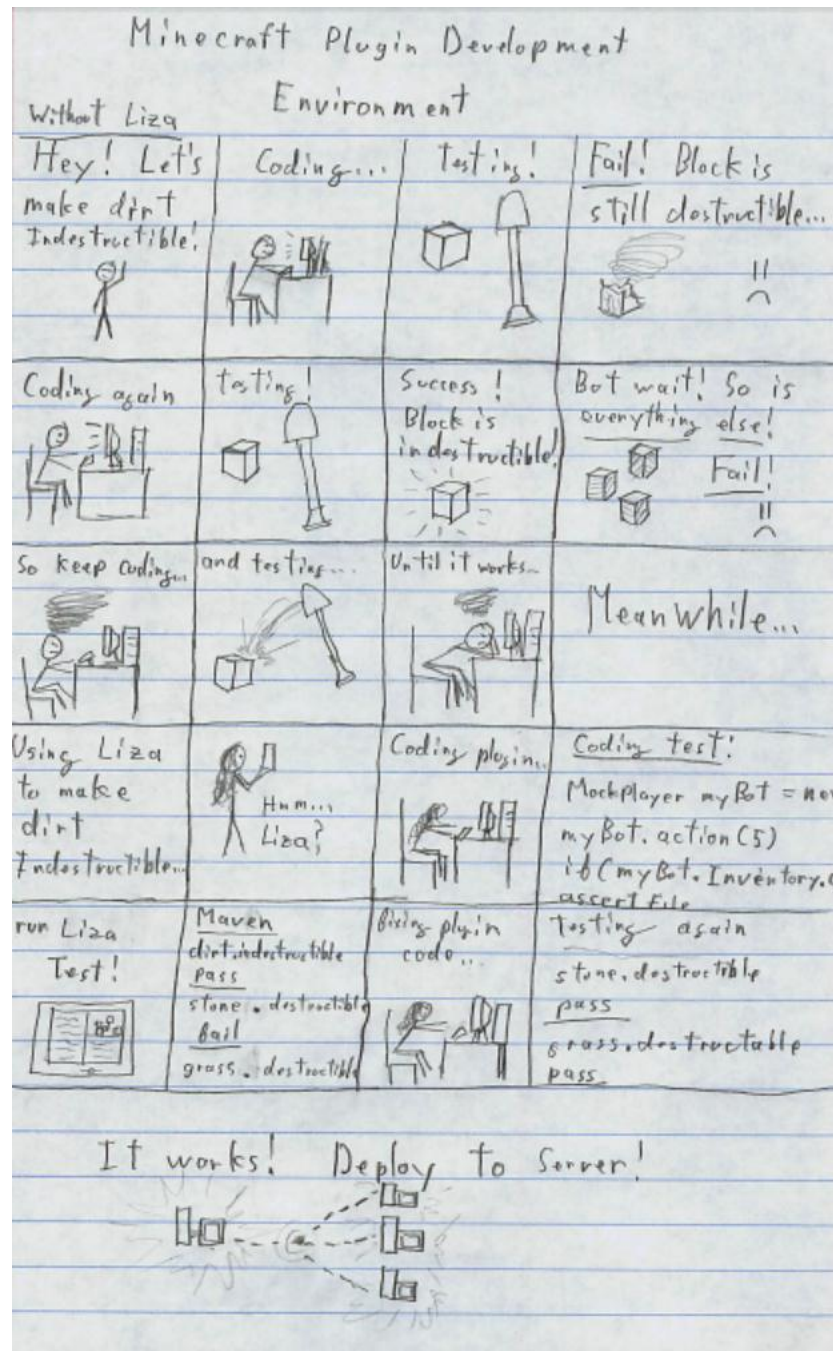 Minecraft Plugin Development
Environment
Without Liza
Hey! Let's
make dirt
Indestructible!
Coding...
Testing!
Fail! Block is
still destructible...
Coding again
testing!
Success!
Block is
indestructible!
But wait! So is
everything else!
Fail!
So keep coding...
and testing...
Until it works...
Meanwhile...
Using Liza
to make
dirt
Indestructible...
Hmm...
Liza?
Coding plugin...
Coding test!
Mockplayer myBot = new
myBot.action(5)
if(myBot.Inventory.
assert File
run Liza
Test!
Maven
dirt.indestructible
pass
stone.destructible
fail
grass.destructible
fixing plugin
code...
testing again
stone.destructible
pass
grass.destructable
pass
It works! Deploy to Server!